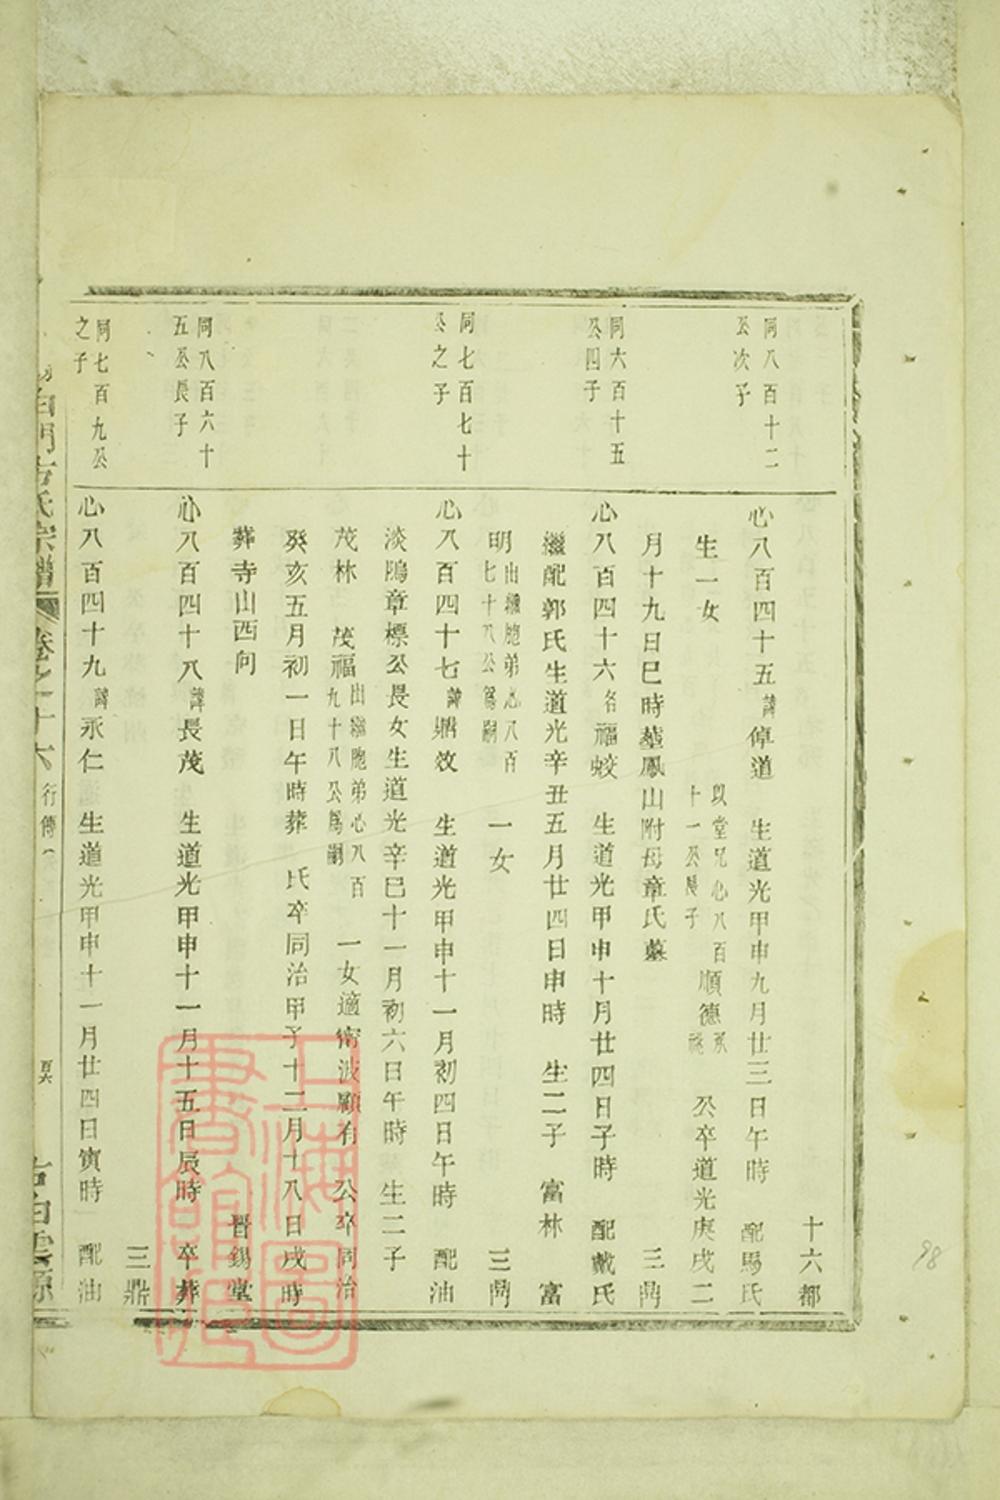 十六都
同八百十二
公次子
心八百四十五 諱倬道 生道光甲申九月廿三日午時 配馬氏
生一女 以堂兄心八百十一公長子順德承祧 公卒道光庚戌二
月十九日巳時塟鳳山附母章氏墓 三鼎
同六百十五
公四子
心八百四十六 名福蛟 生道光甲申十月廿四日子時 配戴氏
繼配郭氏生道光辛丑五月廿四日申時 生二子 富林 富
明 出繼胞弟心八百七十八公爲嗣 一女 三鼎
同七百七十
公之子
心八百四十七 諱鼎效 生道光甲申十一月初四日午時 配油
淡鴟章標公長女生道光辛巳十一月初六日午時 生二子
茂林 茂福 出繼胞弟心八百九十八公爲嗣 一女適甯波顧有 公卒同治
癸亥五月初一日午時葬 氏卒同治甲子十二月十八日戌時
葬寺山西向 晋錫堂
同八百六十
五公長子
心八百四十八 諱長茂 生道光甲申十一月十五日辰時 卒葬
三鼎
同七百九公
之子
心八百四十九 諱永仁 生道光甲申十一月廿四日寅時 配油
白門方氏宗譜 卷之十六 行傳 古白雲源
上海圖書館藏
98